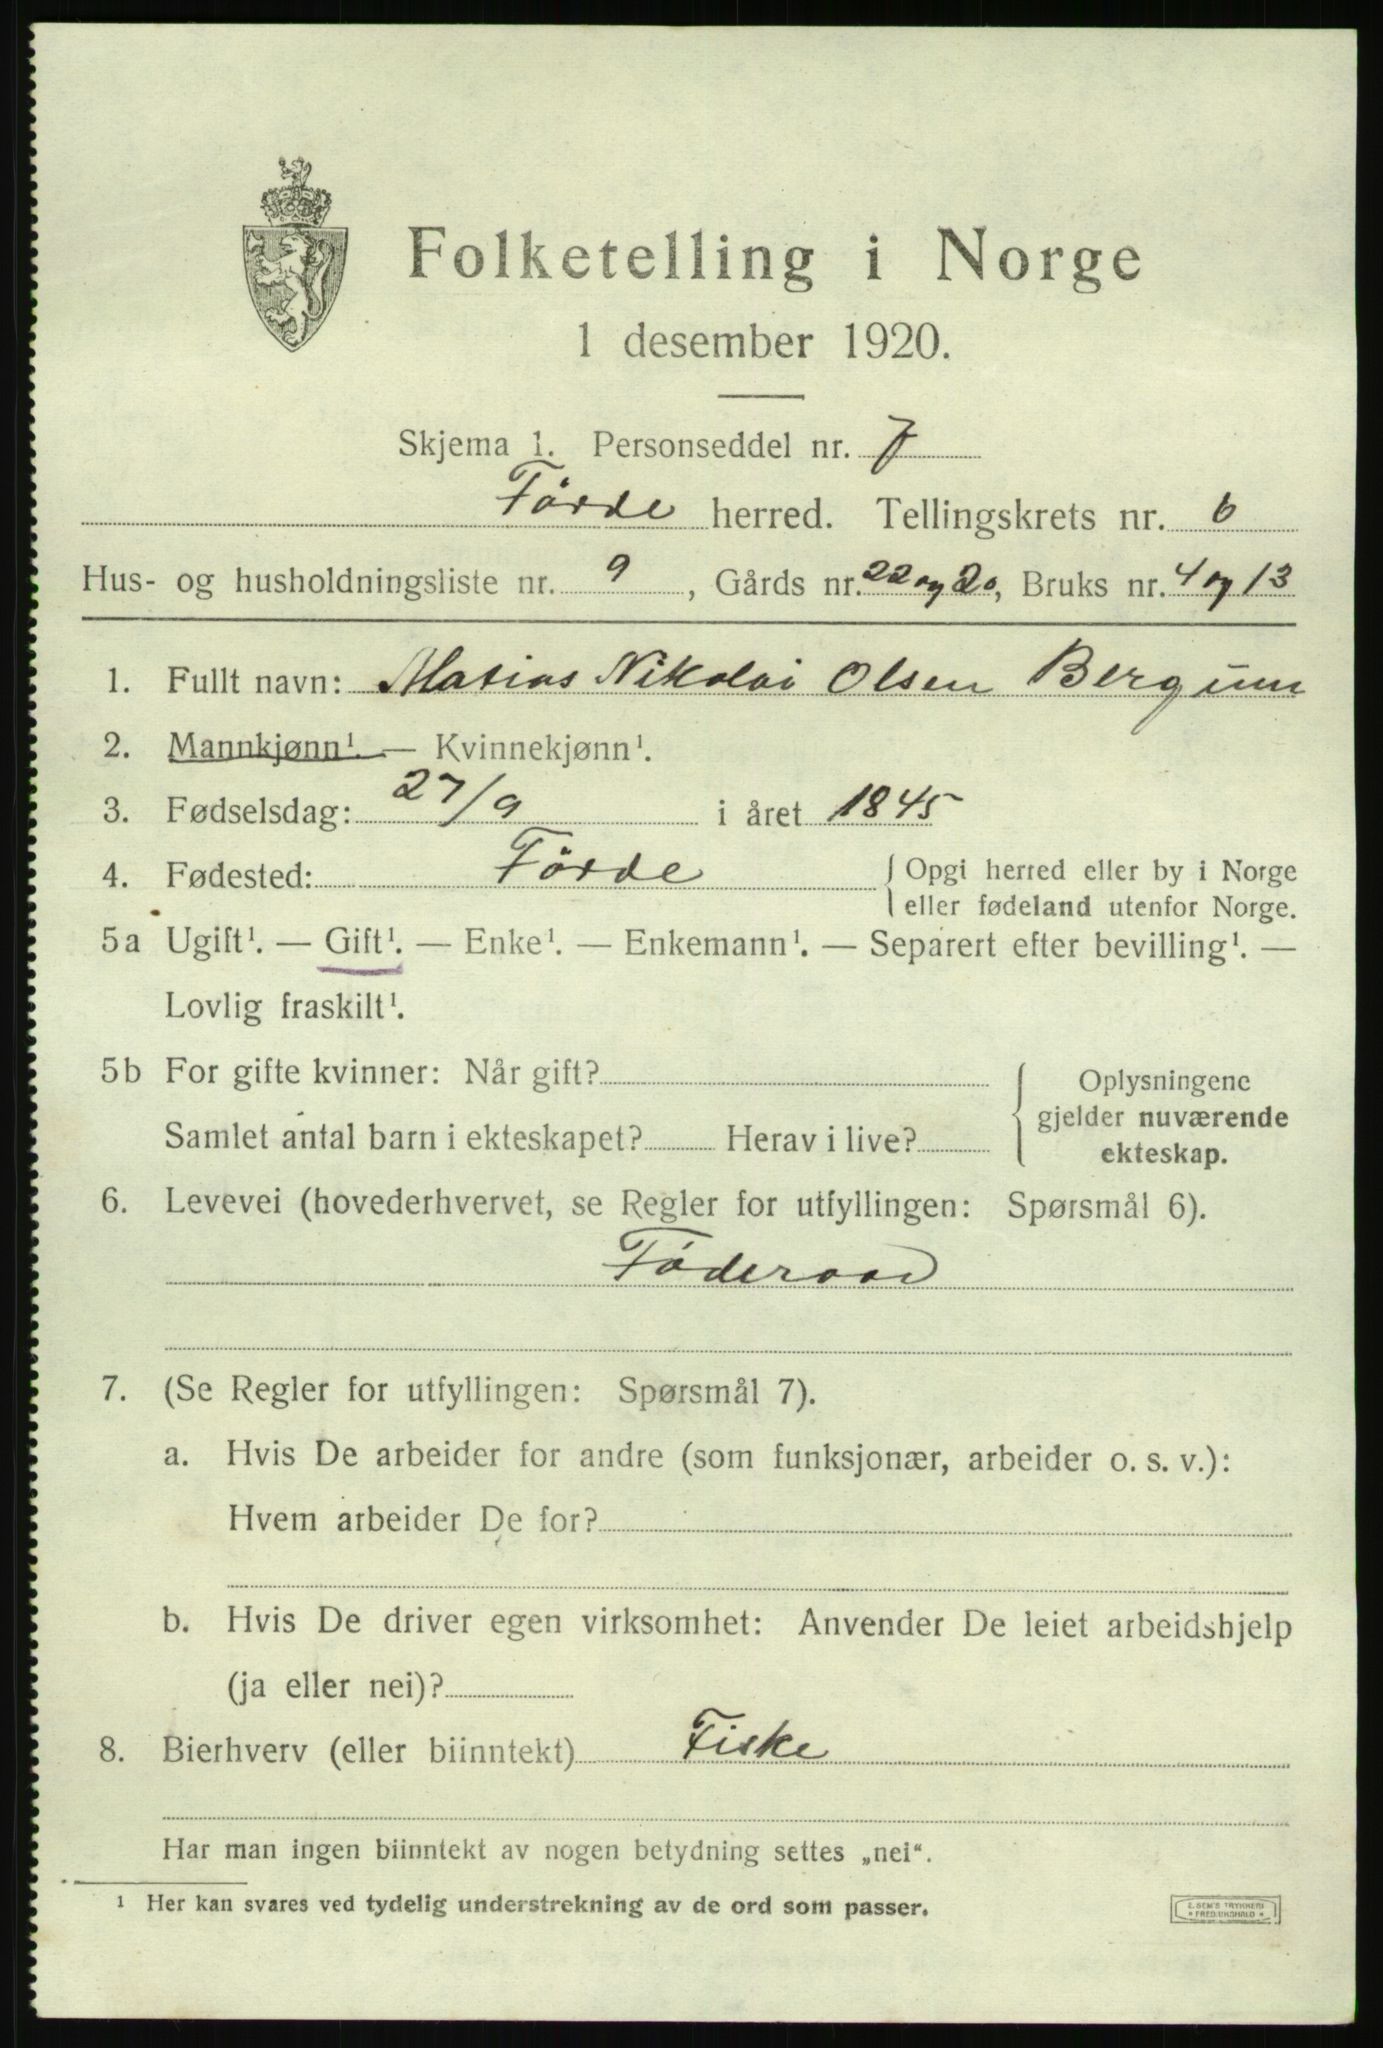 Folketelling i Norge
1 desember 1920.
Skjema 1. Personseddel nr. 7
Førde herred. Tellingskrets nr. 6
Hus- og husholdningsliste nr. 9, Gårds nr. 22 og 20, Bruks nr. 4 og 13
1. Fullt navn: Matias Nikolai Olsen Bergum
2. Mannkjønn¹. — Kvinnekjønn¹.
3. Fødselsdag: 27/9 i året 1845
4. Fødested: Førde { Opgi herred eller by i Norge
eller fødeland utenfor Norge.
5a Ugift¹. — Gift¹. — Enke¹. — Enkemann¹. — Separert efter bevilling¹. —
Lovlig fraskilt¹.
5b For gifte kvinner: Når gift?
Samlet antal barn i ekteskapet? Herav i live?
{ Oplysningene
gjelder nuværende
ekteskap.
6. Levevei (hovederhvervet, se Regler for utfyllingen: Spørsmål 6).
Føderaad
7. (Se Regler for utfyllingen: Spørsmål 7).
a. Hvis De arbeider for andre (som funksjonær, arbeider o. s. v.):
Hvem arbeider De for?
b. Hvis De driver egen virksomhet: Anvender De leiet arbeidshjelp
(ja eller nei)?
8. Bierhverv (eller biinntekt) Fiske
Har man ingen biinntekt av nogen betydning settes „nei“.
¹ Her kan svares ved tydelig understrekning av de ord som passer.
E. SEM'S TRYKKERI
* FREDRIKSHALD *